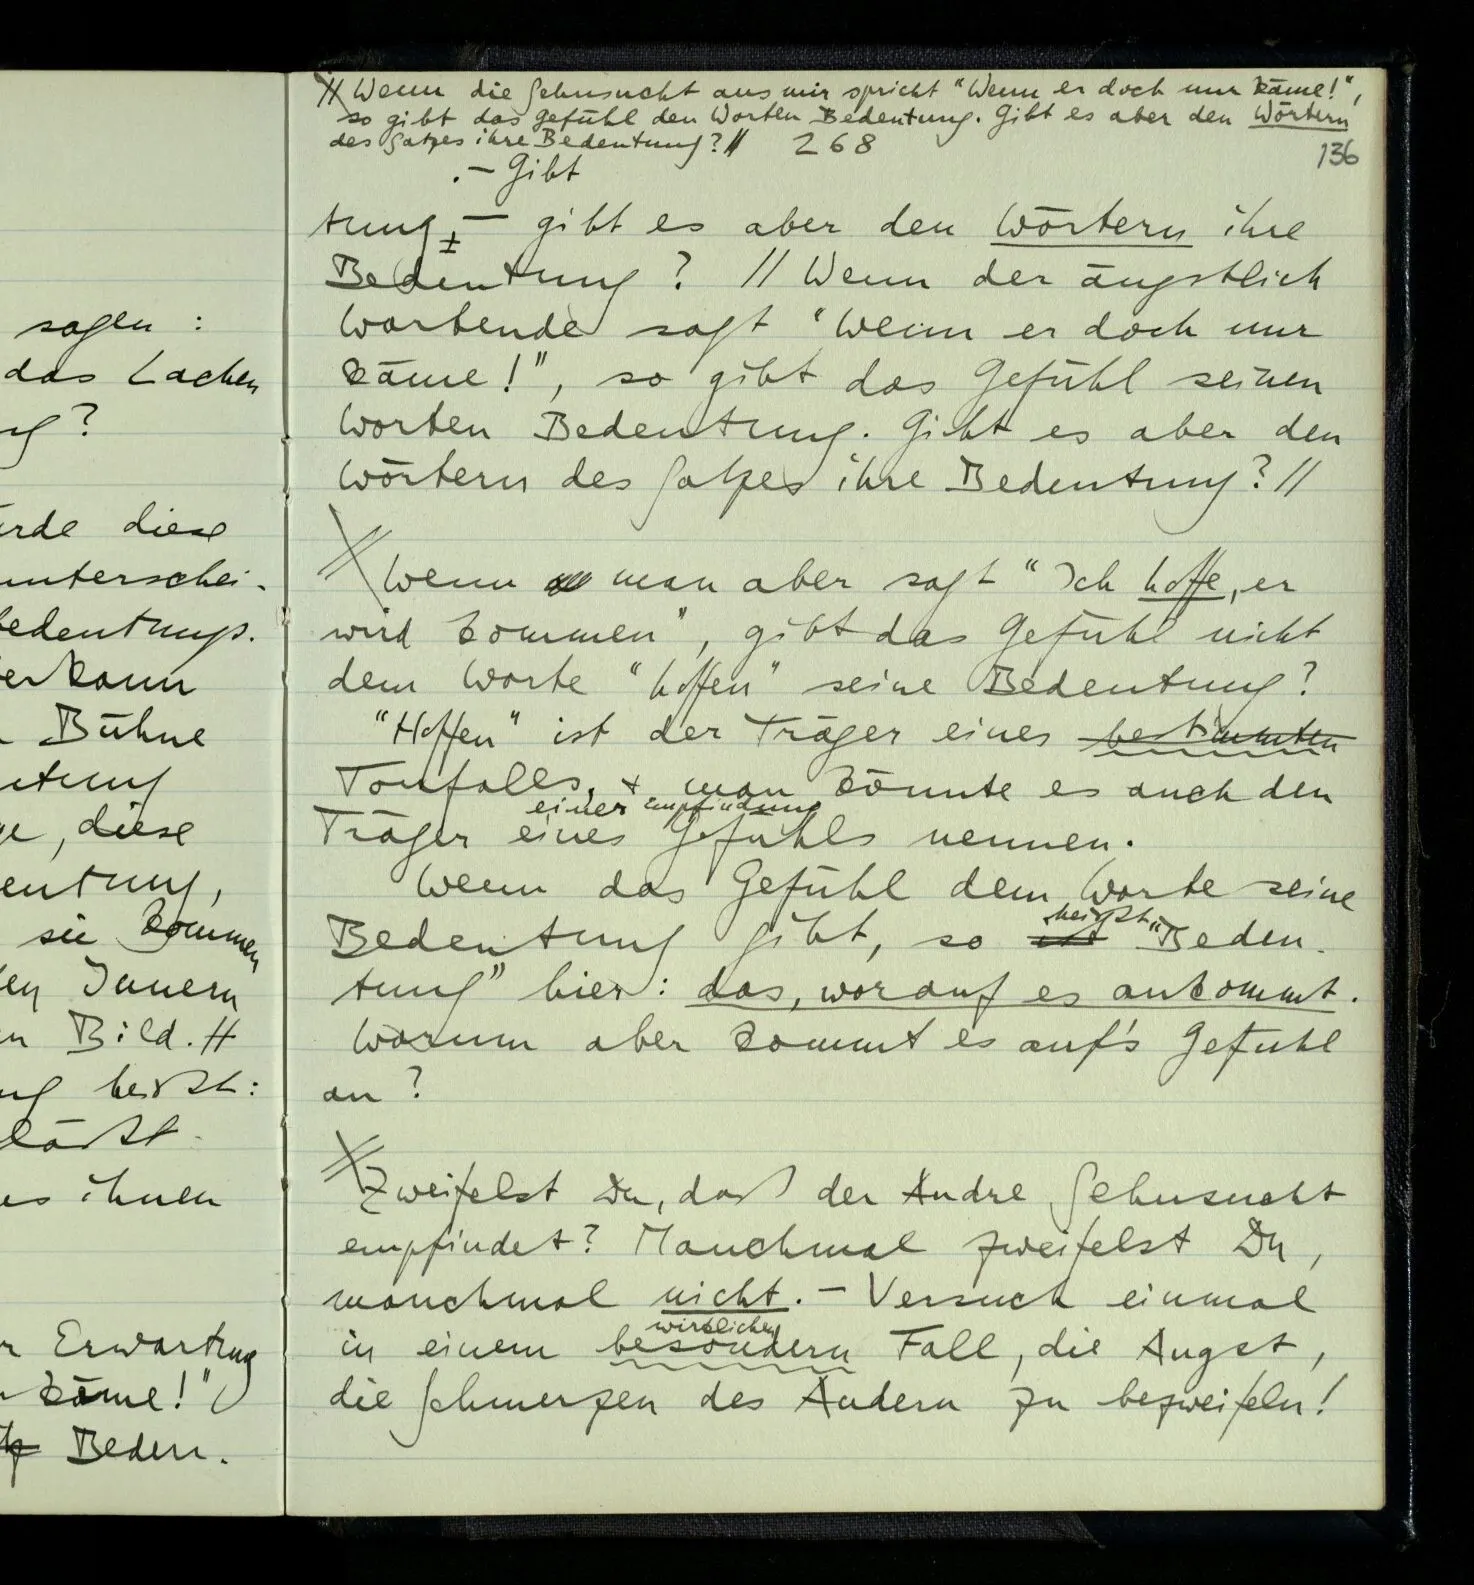 sagen :
das Lachen
g?
rde diese
unterschei-
bedeutungs.
er kann
Bühne
tung
e, diese
eutung,
sie kommen
en Innern
n Bild. //
ng heißt:
läßt
es ihnen
r Erwartung
käme!"
Bedeu-
// Wenn die Sehnsucht aus mir spricht "Wenn er doch nur käme!",
so gibt das Gefühl den Worten Bedeutung. Gibt es aber den Wörtern
des Satzes ihre Bedeutung? // 268
136
.– Gibt
tung, – gibt es aber den Wörtern ihre
Bedeutung? // Wenn der ängstlich
Wartende sagt "Wenn er doch nur
käme!", so gibt das Gefühl seinen
Worten Bedeutung. Gibt es aber den
Wörtern des Satzes ihre Bedeutung? //
Wenn man aber sagt "Ich hoffe, er
wird kommen", gibt das Gefühl nicht
dem Worte "hoffen" seine Bedeutung?
"Hoffen" ist der Träger eines bestimmten
Tonfalls, + man könnte es auch den
einer Empfindung
Träger eines Gefühls nennen.
Wenn das Gefühl dem Worte seine
heißt
Bedeutung gibt, so ist "Bedeu-
tung" hier: das, worauf es ankommt.
Warum aber kommt es auf's Gefühl
an?
Zweifelst Du, daß der Andre Sehnsucht
empfindet? Manchmal zweifelst Du,
manchmal nicht. – Versuch einmal
wirklichen
in einem besondern Fall, die Angst,
die Schmerzen des Andern zu bezweifeln!